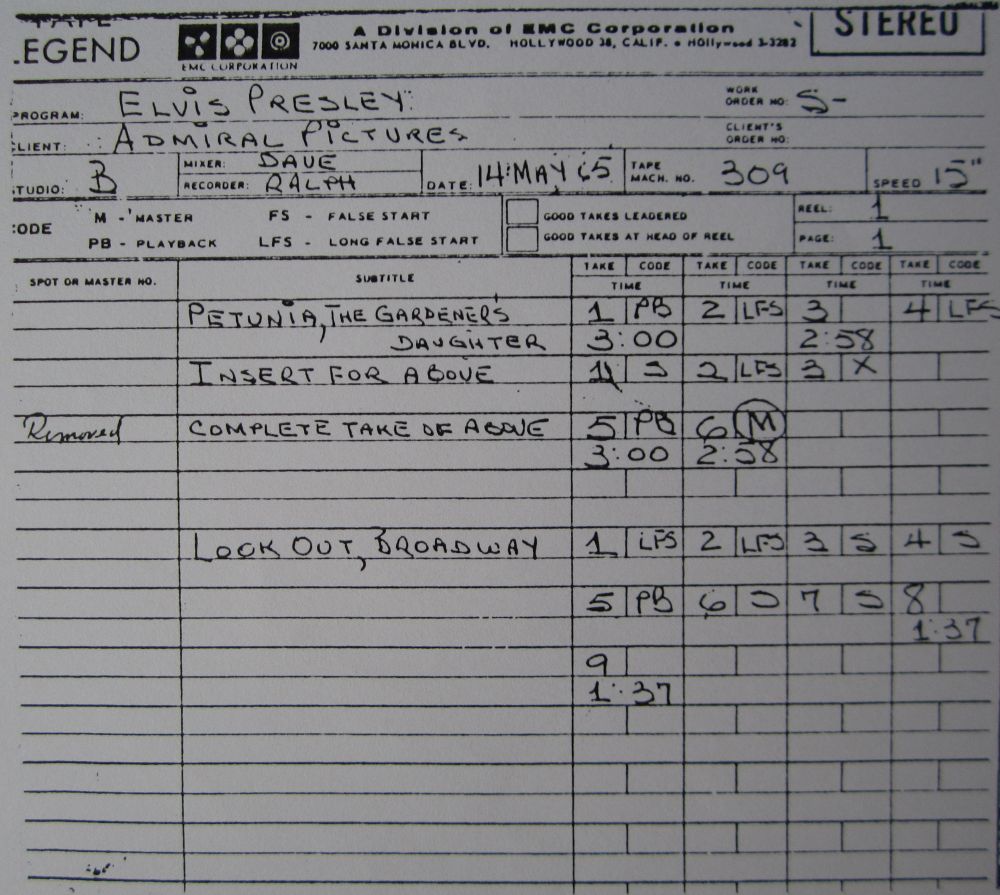 LEGEND A Division of EMC Corporation STEREO
EMC CORPORATION 7000 SANTA MONICA BLVD. HOLLYWOOD 38, CALIF. • HOllywood 3-3282
PROGRAM: ELVIS PRESLEY WORK ORDER NO: S-
CLIENT: ADMIRAL PICTURES CLIENT'S ORDER NO:
STUDIO: B MIXER: DAVE RECORDER: RALPH DATE: 14 MAY 65 TAPE MACH. NO. 309 SPEED 15"
CODE M - MASTER FS - FALSE START GOOD TAKES LEADERED REEL: 1
PB - PLAYBACK LFS - LONG FALSE START GOOD TAKES AT HEAD OF REEL PAGE: 1
SPOT OR MASTER NO. SUBTITLE TAKE CODE TAKE CODE TAKE CODE TAKE CODE
TIME TIME TIME TIME
PETUNIA, THE GARDENERS 1 PB 2 LFS 3 4 LFS
DAUGHTER 3:00 2:58
INSERT FOR ABOVE 1 S 2 LFS 3 X
Removed COMPLETE TAKE OF ABOVE 5 PB 6 M
3:00 2:58
LOOK OUT, BROADWAY 1 LFS 2 LFS 3 S 4 S
5 PB 6 S 7 S 8
1:37
9
1:37